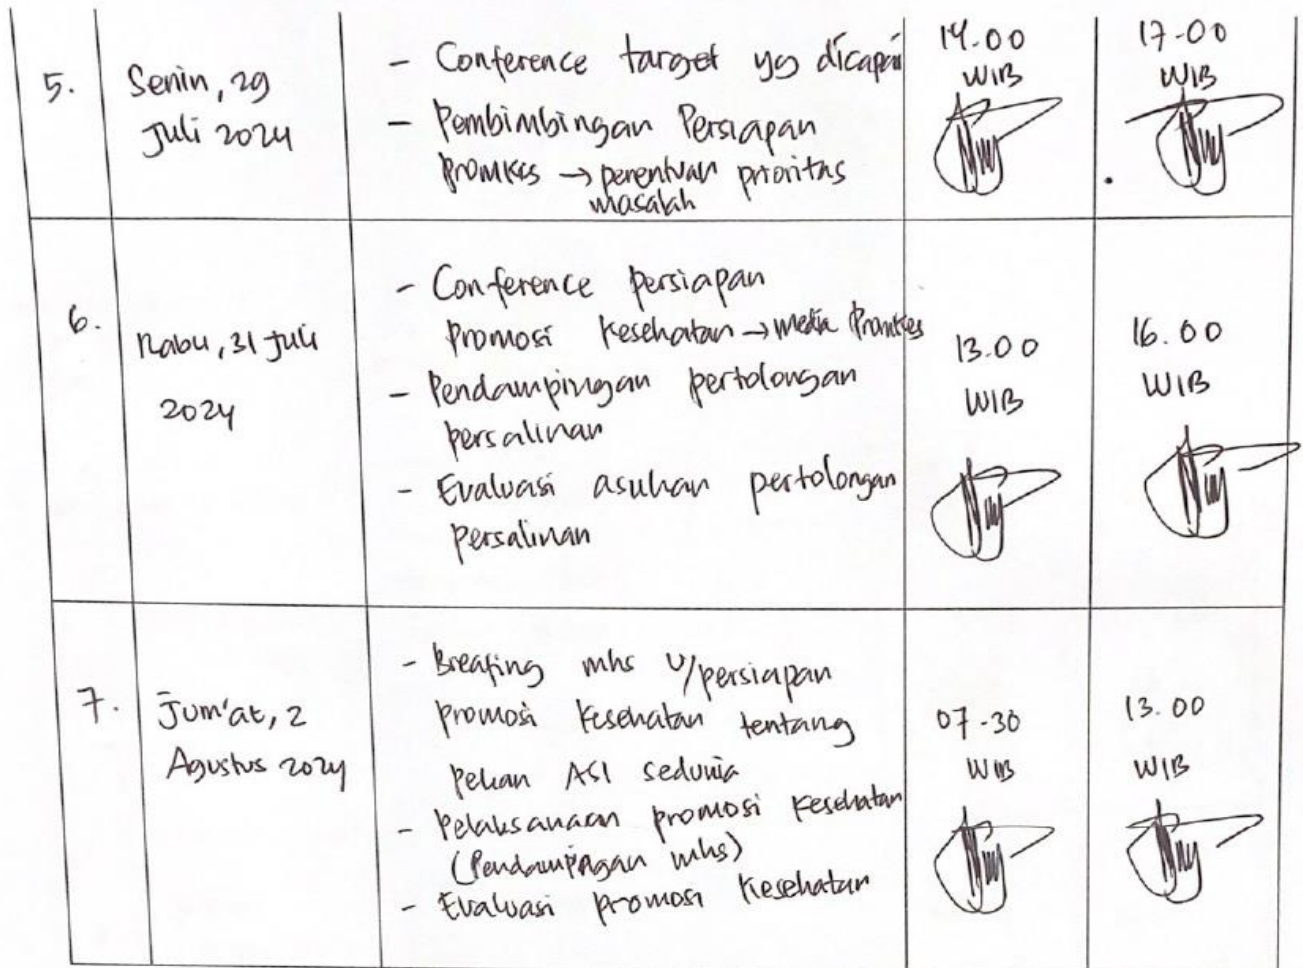 5.
Senin, 29
Juli 2024
- Conference target yg dicapai
- Pembimbingan Persiapan
Promkes → penentuan prioritas
masalah
14.00
WIB
17.00
WIB
6.
Rabu, 31 Juli
2024
- Conference persiapan
Promosi Kesehatan → media Promkes
- Pendampingan pertolongan
persalinan
- Evaluasi asuhan pertolongan
persalinan
13.00
WIB
16.00
WIB
7.
Jum'at, 2
Agustus 2024
- Breafing mhs u/persiapan
promosi Kesehatan tentang
pekan ASI sedunia
- Pelaksanaan promosi Kesehatan
(Pendampingan mhs)
- Evaluasi promosi Kesehatan
07-30
WIB
13.00
WIB